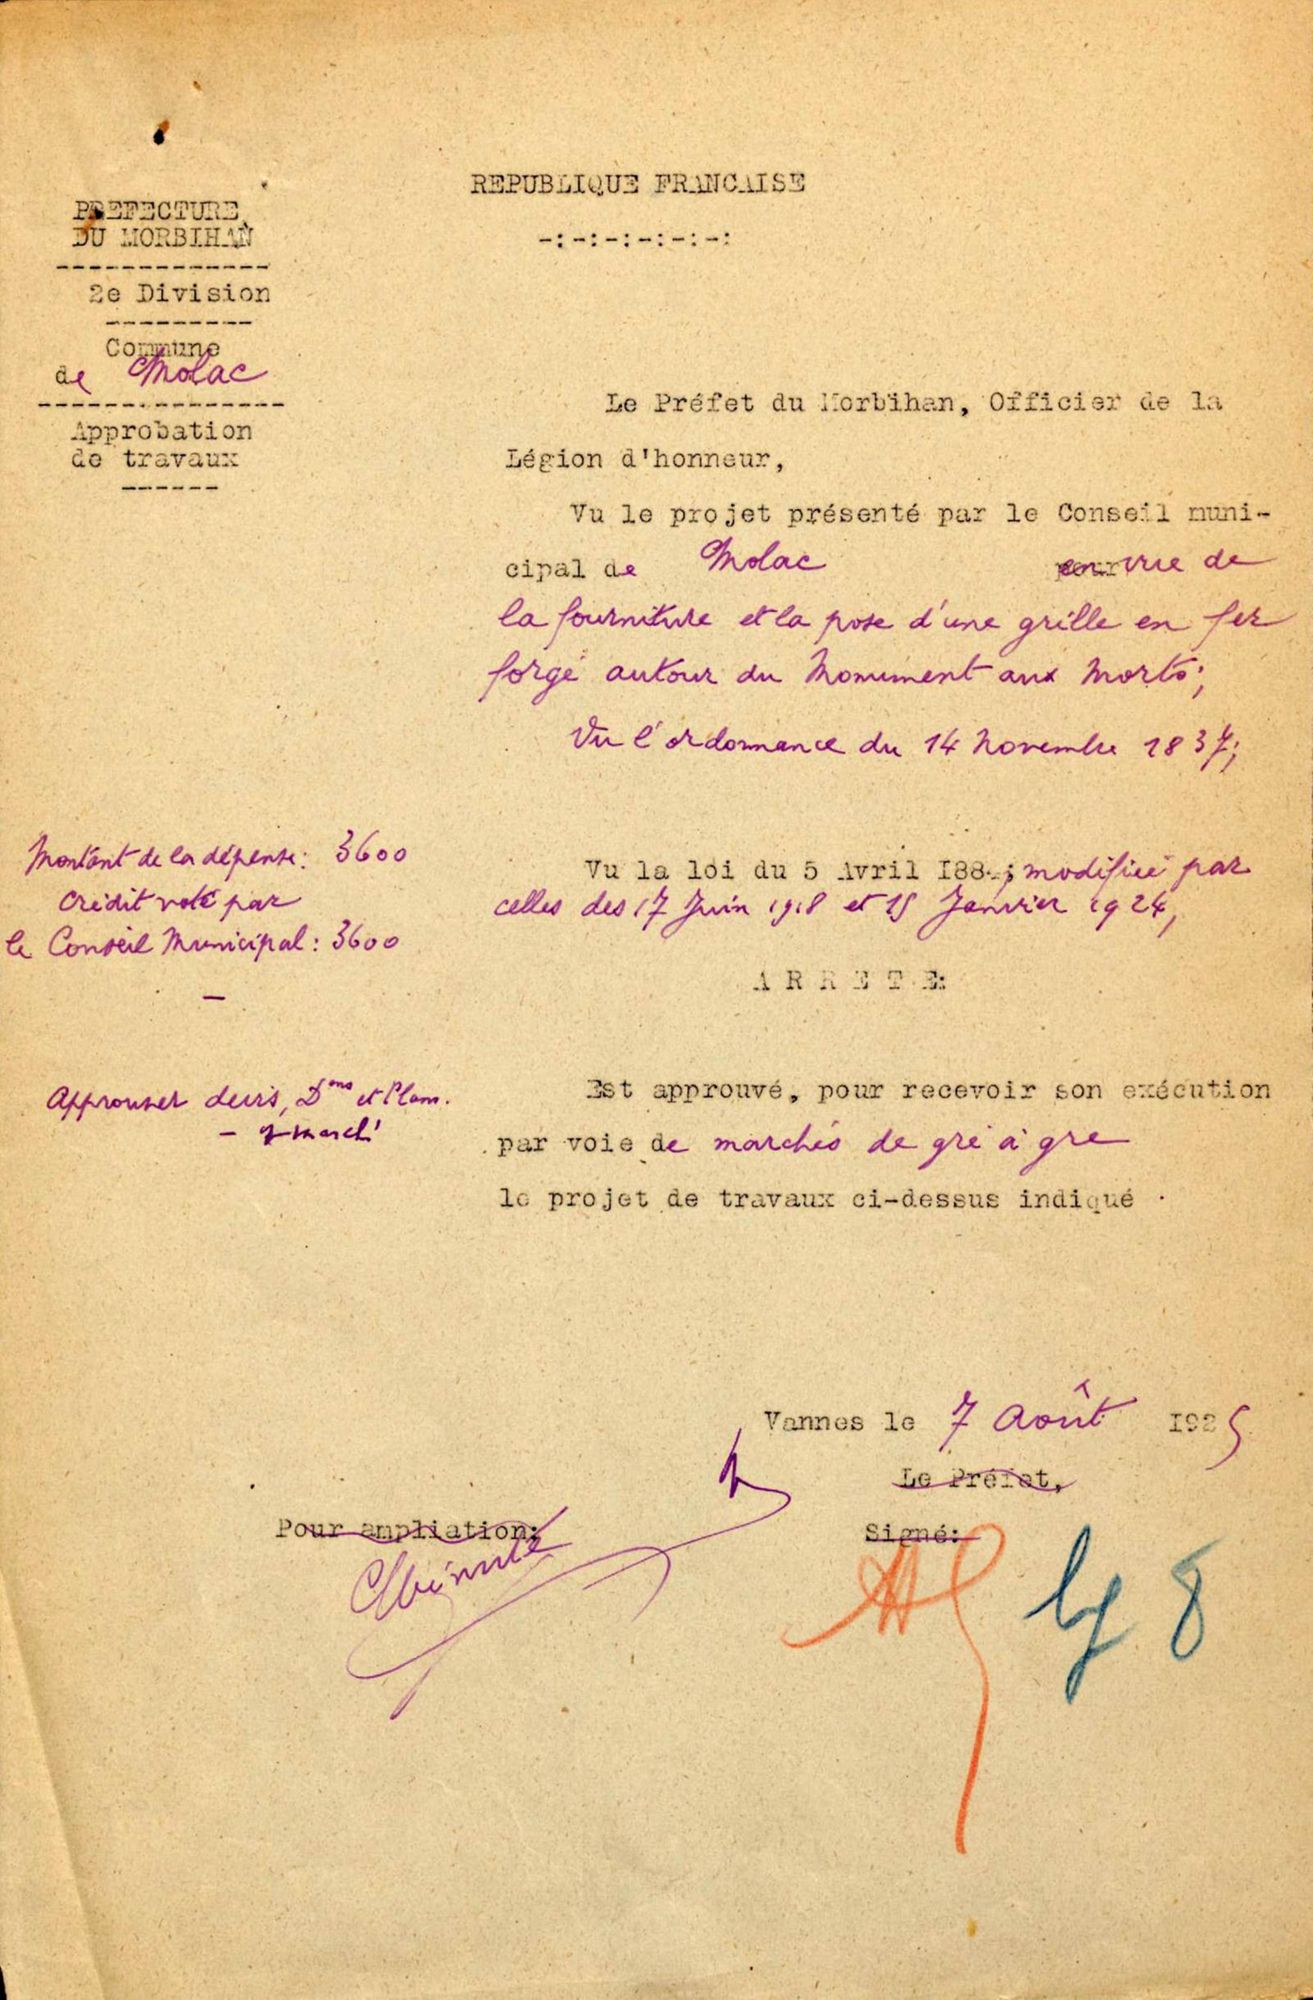 REPUBLIQUE FRANCAISE
-:-:-:-:-:-:
PREFECTURE
DU MORBIHAN
2e Division
Commune
de Molac
Approbation
de travaux
Le Préfet du Morbihan, Officier de la
Légion d'honneur,
Vu le projet présenté par le Conseil muni-
cipal de Molac pour en vue de
la fourniture et la pose d'une grille en fer
forgé autour du Monument aux Morts;
Vu l'ordonnance du 14 Novembre 1837;
Montant de la dépense: 3600
Crédit voté par
le Conseil Municipal: 3600
Vu la loi du 5 Avril I884; modifiée par
celles des 17 Juin 1918 et 15 Janvier 1924,
A R R E T E:
Approuver devis, Dons et Plans.
- marché
Est approuvé, pour recevoir son exécution
par voie de marchés de gré à gré
le projet de travaux ci-dessus indiqué
Vannes le 7 Août I925
Le Préfet,
Pour ampliation:
Signé:
Minute
8